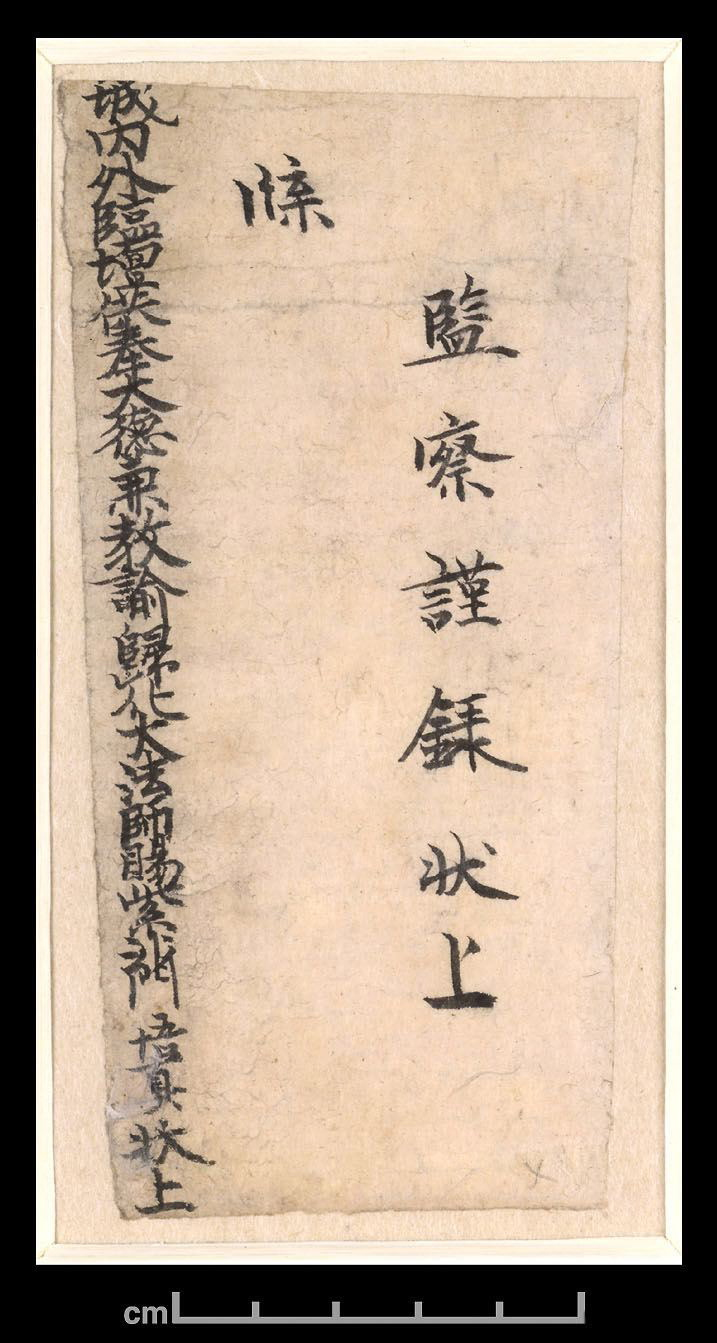 監察謹録状上
牒
城内外臨壇供奉大德兼教諭歸化大法師賜紫沙門 悟真狀上
cm